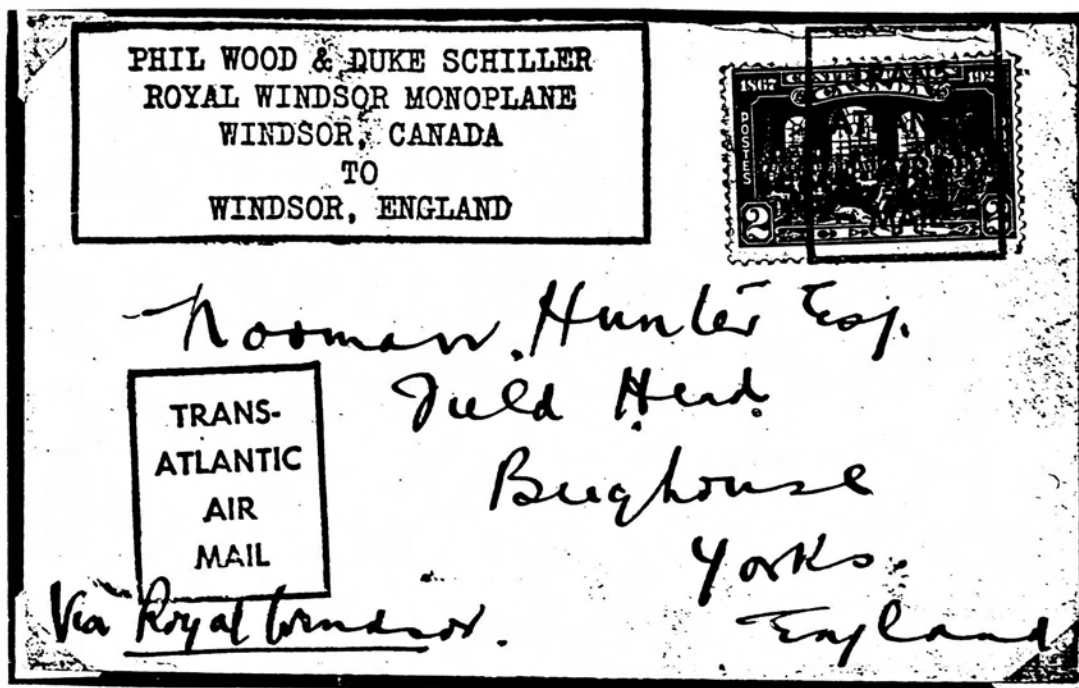 PHIL WOOD & DUKE SCHILLER
ROYAL WINDSOR MONOPLANE
WINDSOR, CANADA
TO
WINDSOR, ENGLAND
1867 192
CANADA
POSTES
2 2
Norman Hunter Esq.
Field Head
Brighouse
Yorks.
England
TRANS-
ATLANTIC
AIR
MAIL
Via Royal Windsor.